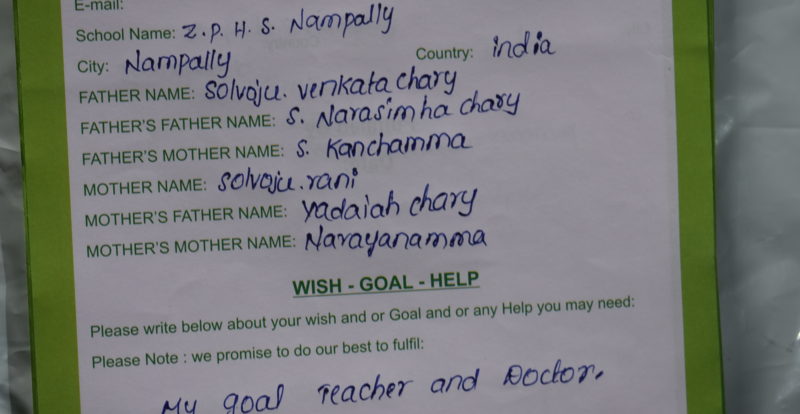 E-mail:
School Name: Z.P.H.S. Nampally
City: Nampally Country: india
FATHER NAME: Solvoju. venkata chary
FATHER'S FATHER NAME: S. Narasimha chary
FATHER'S MOTHER NAME: S. Kanchamma
MOTHER NAME: Solvoju.rani
MOTHER'S FATHER NAME: Yadaiah chary
MOTHER'S MOTHER NAME: Narayanamma
WISH - GOAL - HELP
Please write below about your wish and or Goal and or any Help you may need:
Please Note : we promise to do our best to fulfil:
My goal Teacher and Doctor.